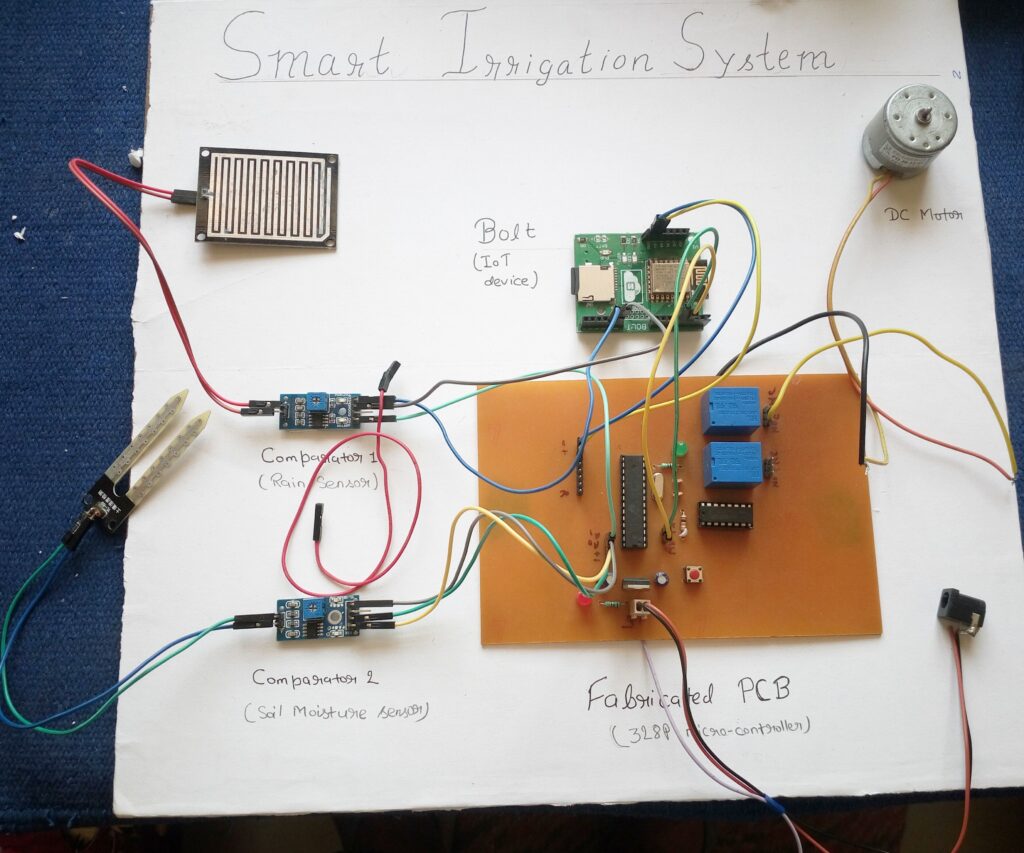 Smart Irrigation System
DC Motor
Bolt
(IoT
device)
BOLT
Comparator 1
(Rain Sensor)
Comparator 2
(Soil Moisture sensor)
Fabricated PCB
(328P micro-controller)